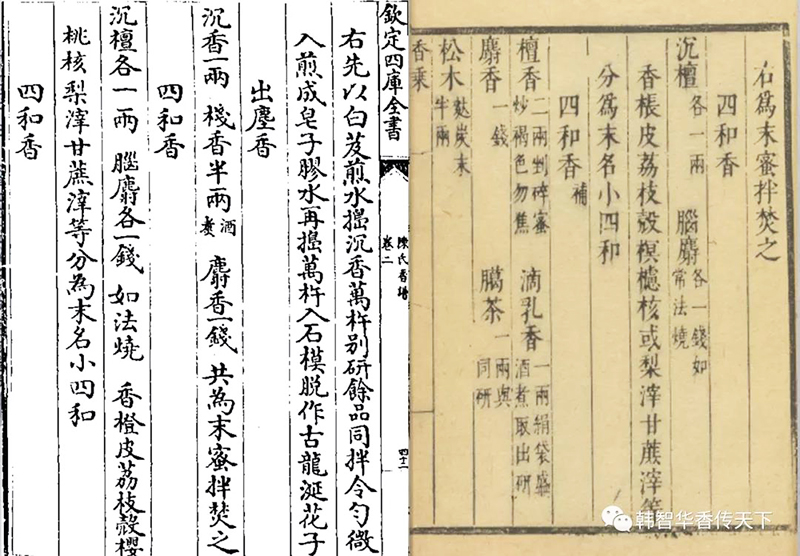 欽定四庫全書
卷二
陳氏香譜
右先以白芨煎水搗沉香萬杵别研餘品同拌令勻微
入煎成皂子膠水再搗萬杵入石模脫作古龍涎花子
出塵香
沉香一兩 棧香半兩酒煮 麝香一錢 共為末蜜拌焚之
四和香
沉檀各一兩 腦麝各一錢 如法燒 香橙皮荔枝殼櫻
桃核梨滓甘蔗滓等分為末名小四和
四和香
右爲末蜜拌焚之
四和香
沉檀各一兩 腦麝各一錢如常法燒
香棖皮荔枝殼榠樝核或梨滓甘蔗滓等
分爲末名小四和
四和香補
檀香二兩剉碎蜜炒褐色勿焦 滴乳香一兩絹袋盛酒煮取出研
麝香一錢 臈茶一兩與同研
松木麩炭末半兩
香乘
韩智华香传天下